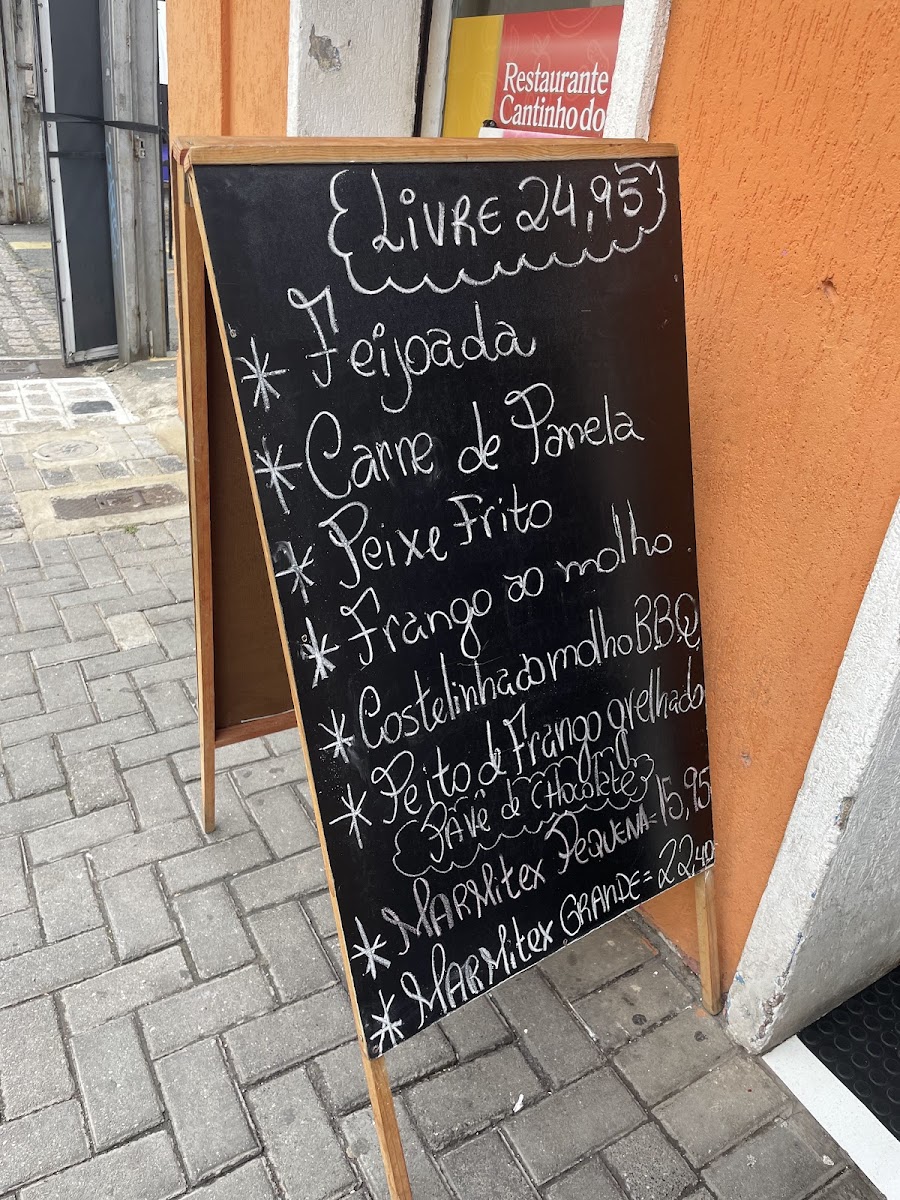 Restaurante
Cantinho do
Livre 24,95
* Feijoada
* Carne de Panela
* Peixe Frito
* Frango ao molho
* Costelinha ao molho BBQ
* Peito de Frango grelhado
Pavê de Chocolate
* Marmitex Pequena = 15,95
* Marmitex Grande = 22,40